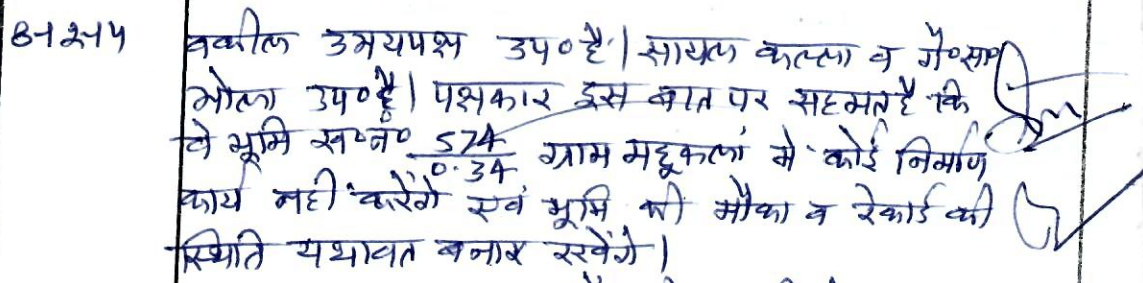 8-12-14 वकील उभयपक्ष उप० है। सायल कल्ला व गै०सा०
भोला उप० है। पक्षकार इस बात पर सहमत है कि
वे भूमि ख०नं० 574/0.34 ग्राम महूकलां मे कोई निर्माण
कार्य नही करेंगे एवं भूमि की मौका व रेकार्ड की
स्थिति यथावत बनाए रखेंगे।